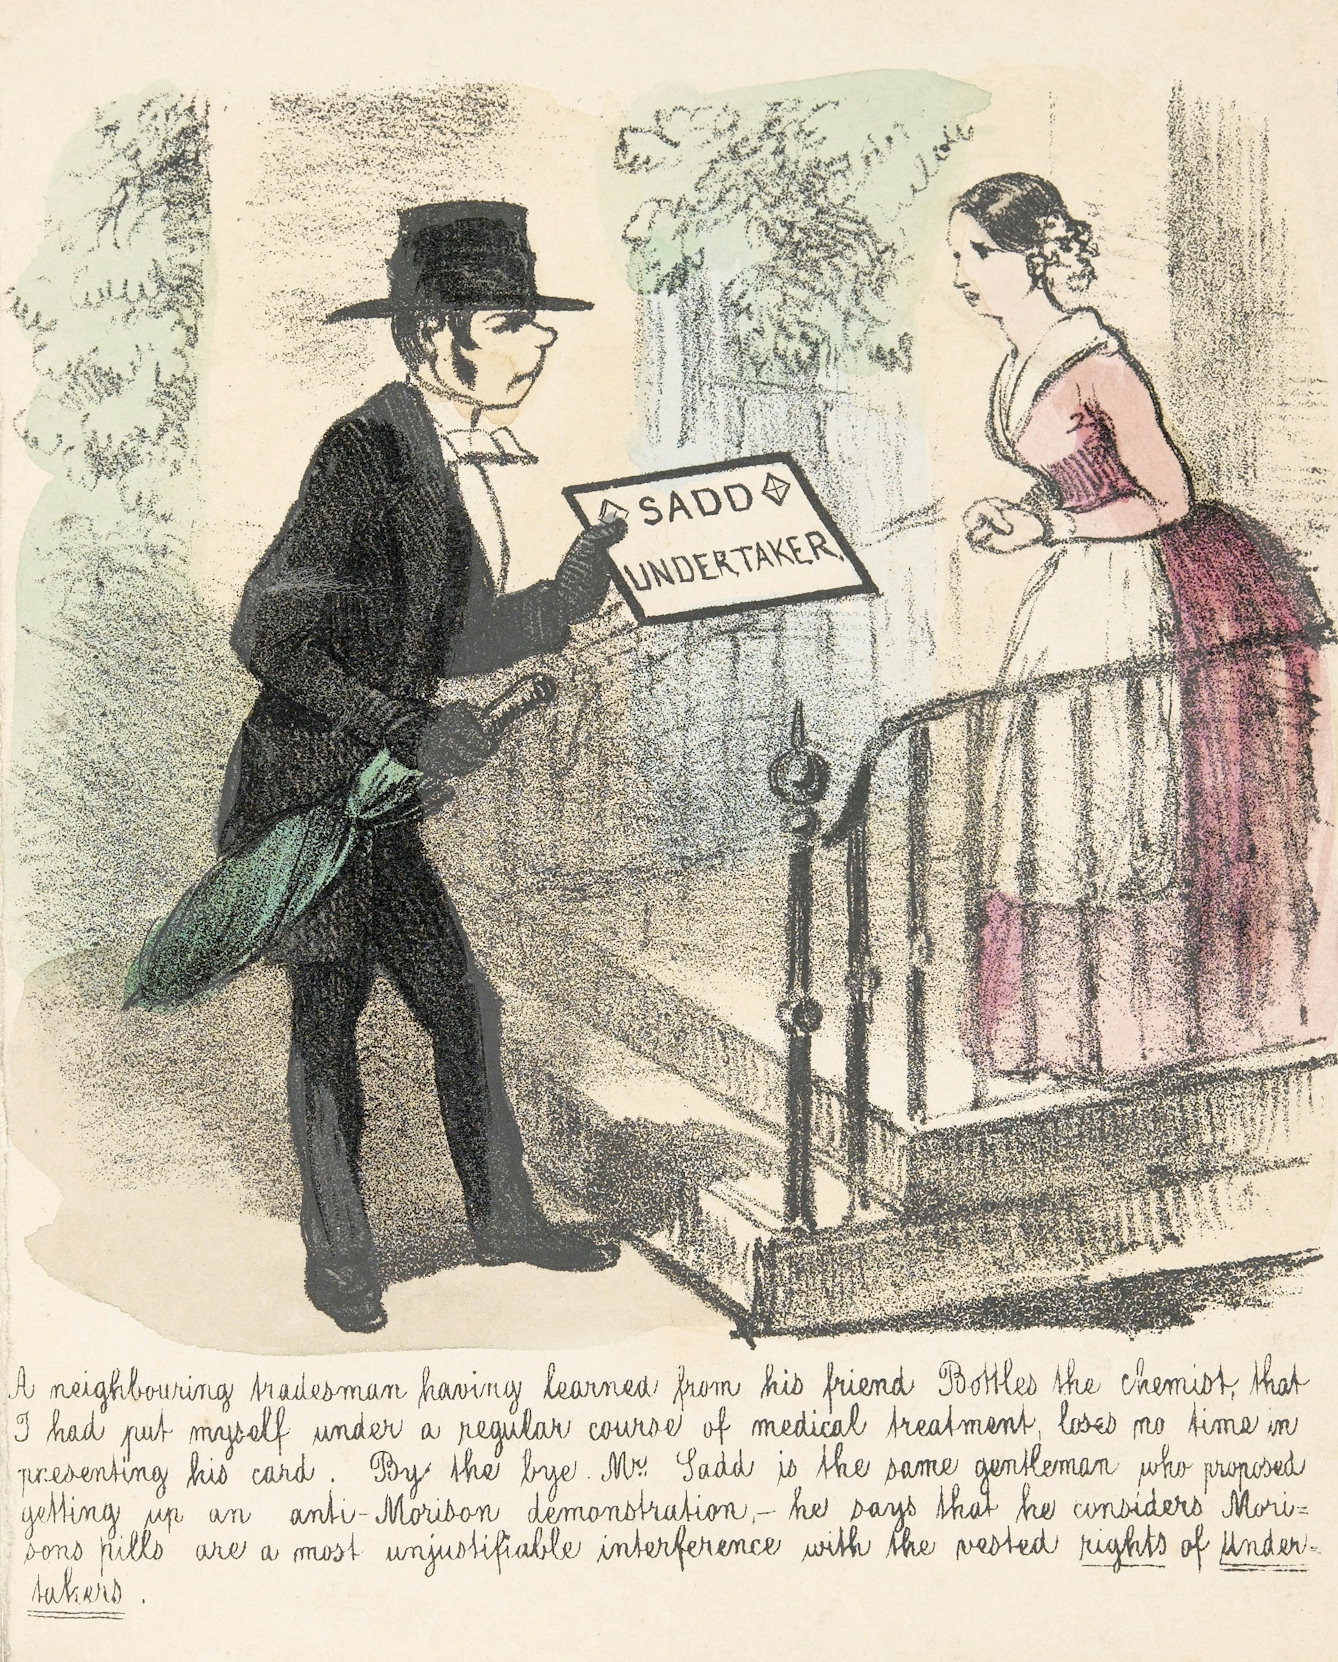 SADD
UNDERTAKER
A neighbouring tradesman having learned from his friend Bottles the chemist, that
I had put myself under a regular course of medical treatment, loses no time in
presenting his card. By the bye. Mr. Sadd is the same gentleman who proposed
getting up an anti-Morison demonstration,- he says that he considers Mori=
sons pills are a most unjustifiable interference with the vested rights of Under=
takers.